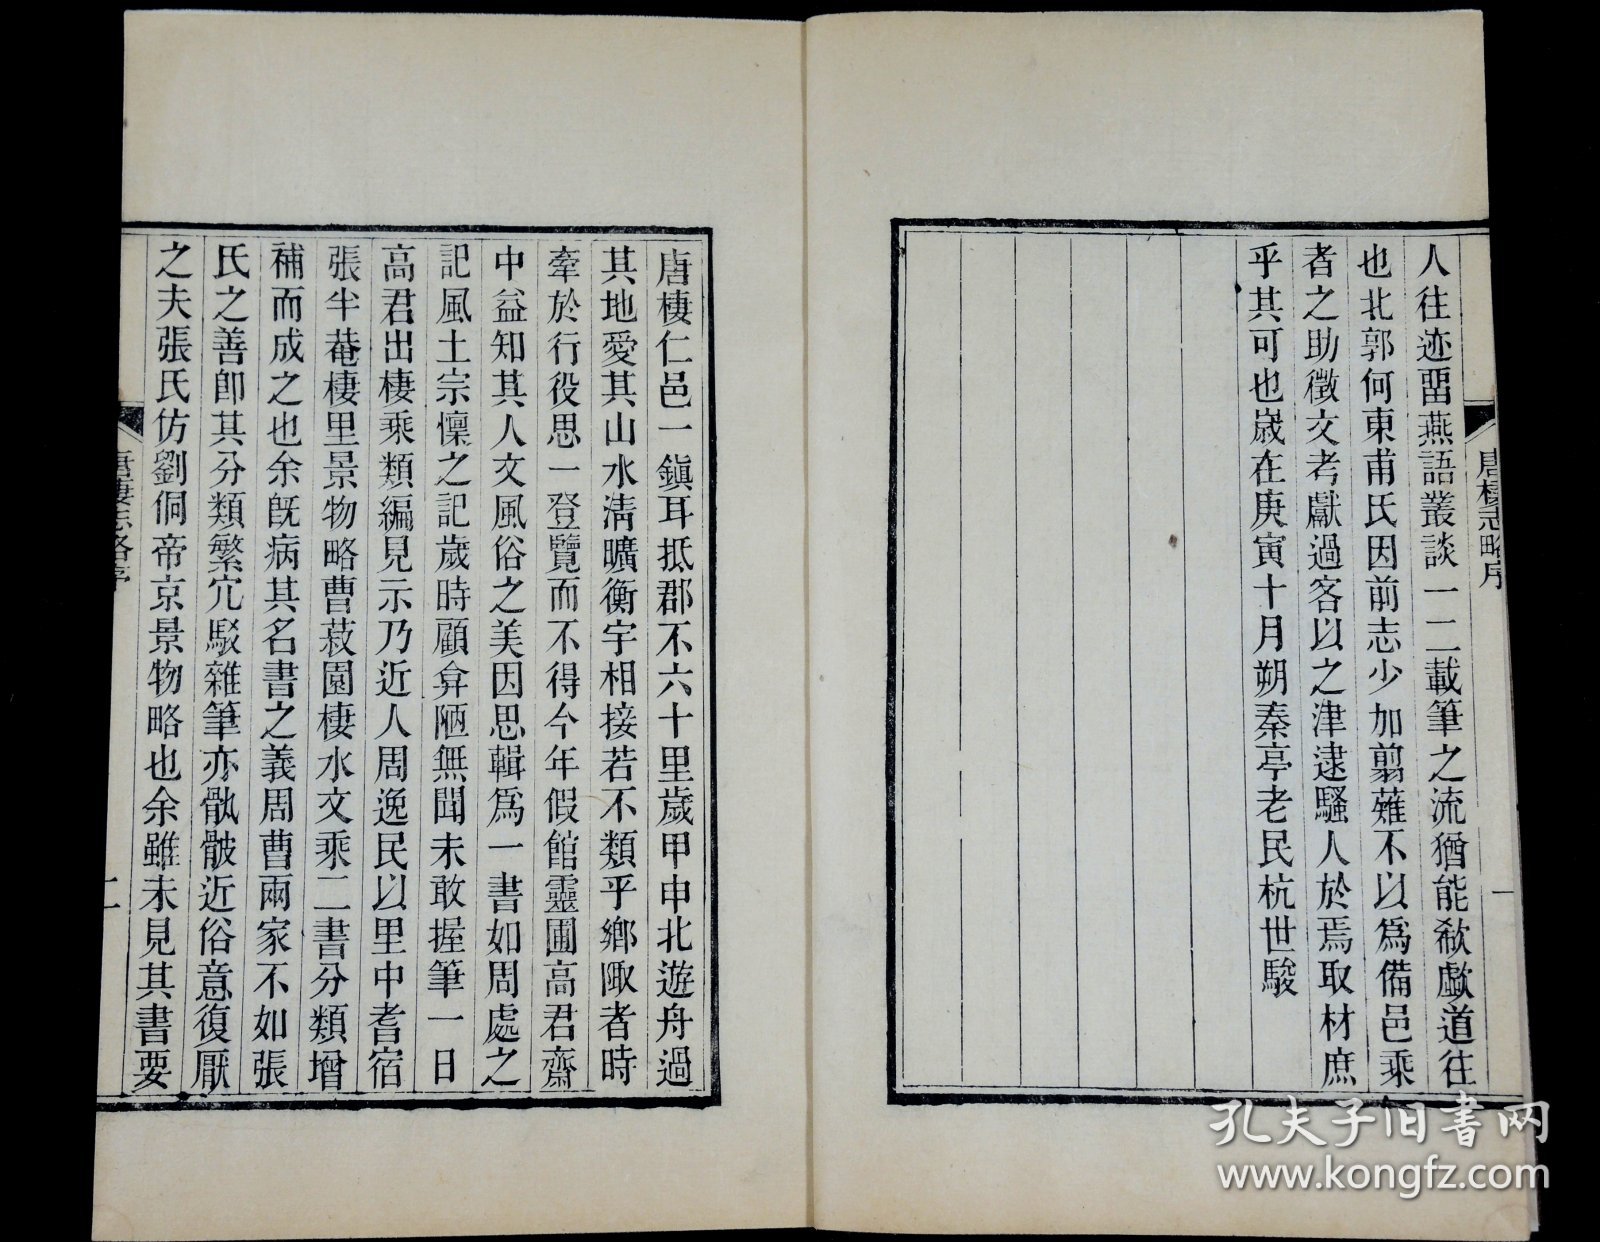 人往迹畱燕語叢談一二載筆之流猶能欷歔道往
也北郭何東甫氏因前志少加翦薙不以爲備邑乘
者之助徵文考獻過客以之津逮騷人於焉取材庶
乎其可也嵗在庚寅十月朔秦亭老民杭世駿
唐棲志略序
一
唐棲仁邑一鎭耳抵郡不六十里歲甲申北遊舟過
其地愛其山水淸曠衡宇相接若不類乎鄉陬者時
牽於行役思一登覽而不得今年假館靈圃高君齋
中益知其人文風俗之美因思輯爲一書如周處之
記風土宗懍之記歲時顧弇陋無聞未敢握筆一日
高君出棲乘類編見示乃近人周逸民以里中耆宿
張半菴棲里景物略曹菽園棲水文乘二書分類增
補而成之也余旣病其名書之義周曹兩家不如張
氏之善卽其分類繁宂駁雜筆亦骫骳近俗意復厭
之夫張氏仿劉侗帝京景物略也余雖未見其書要
唐棲志略序
二
孔夫子旧书网
www.kongfz.com